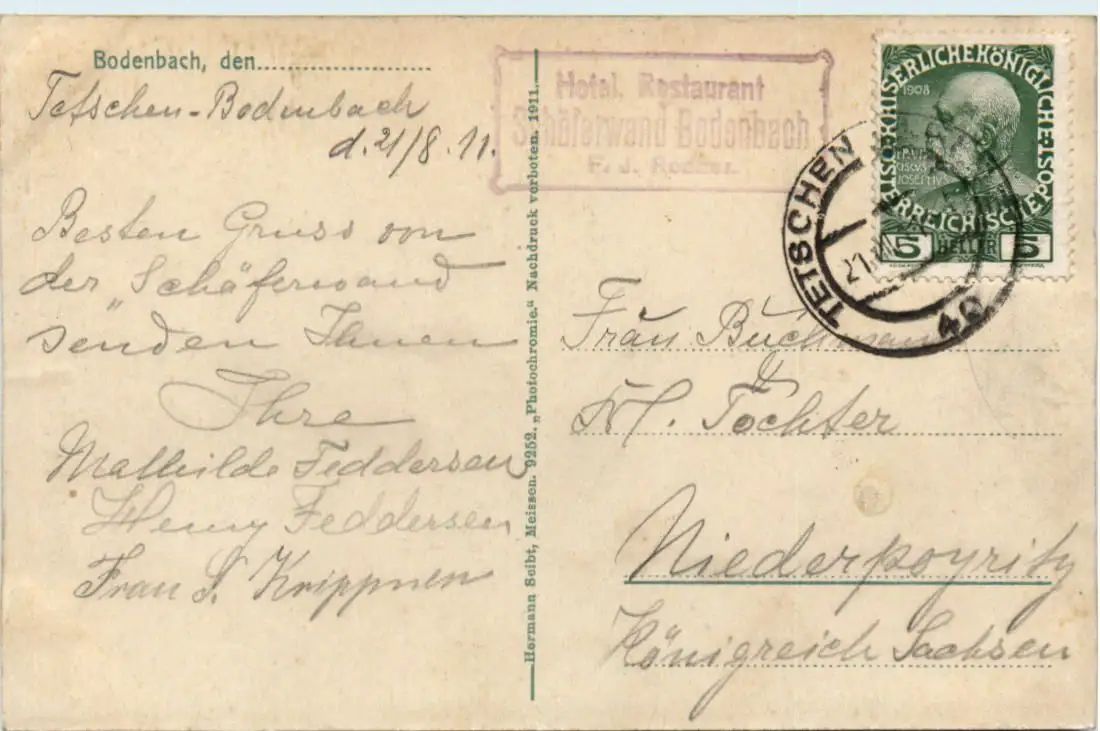 Bodenbach, den
Tetschen-Bodenbach
d. 21/8. 11.
Besten Gruss von
der „Schäferwand
senden Ihnen
Ihre
Mathilde Feddersen
Henny Feddersen
Frau S. Krippnen
Hermann Seibt, Meissen. 9252. „Photochromie.“ Nachdruck verboten. 1911.
Hotel. Restaurant
Schäferwand Bodenbach
F. J.
KAISERLICHEKÖNIGLICHE
ÖSTERREICHISCHE POST
1908
5 HELLER 5
TETSCHEN
21
Frau Buchmann
&
Frl. Tochter
Niederpoyritz
Königreich Sachsen